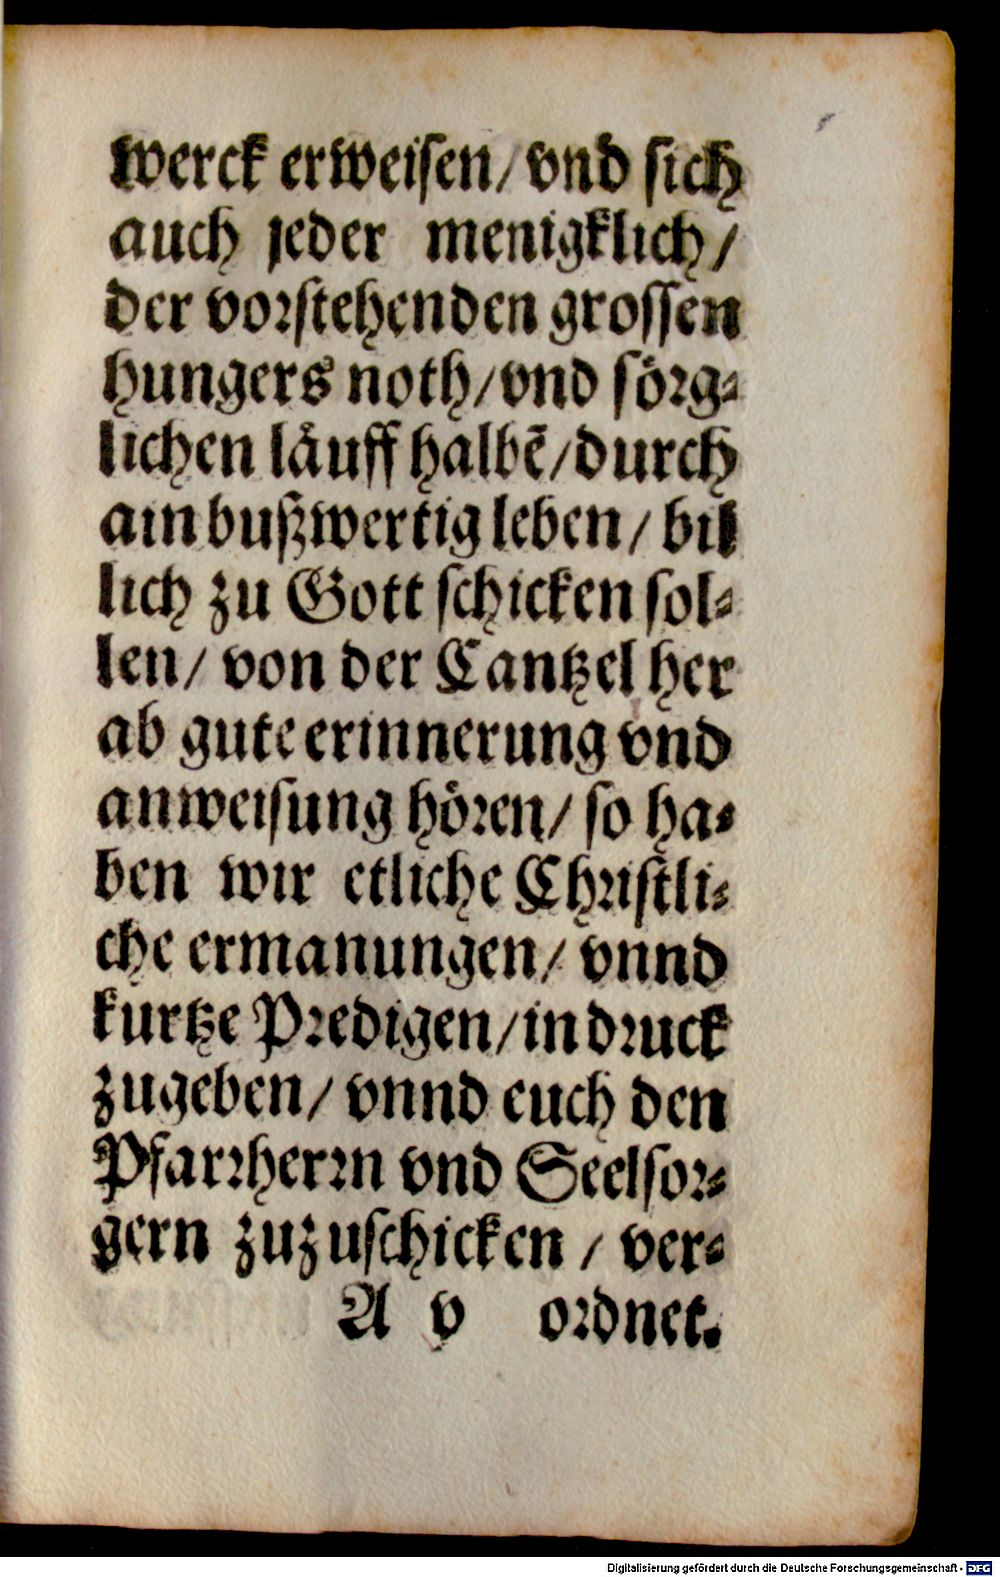 werck erweisen/ vnd sich
auch jeder menigklich/
der vorstehenden grossen
hungers noth/ vnd sörg⸗
lichen läuff halbẽ/ durch
ain bußwertig leben/ bil
lich zu Gott schicken sol⸗
len/ von der Cantzel her
ab gute erinnerung vnd
anweisung hören/ so ha⸗
ben wir etliche Christli⸗
che ermanungen/ vnnd
kurtze Predigen/ in druck
zugeben/ vnnd euch den
Pfarrherrn vnd Seelsor⸗
gern zuzuschicken / ver⸗
A v ordnet.
Digitalisierung gefördert durch die Deutsche Forschungsgemeinschaft - DFG